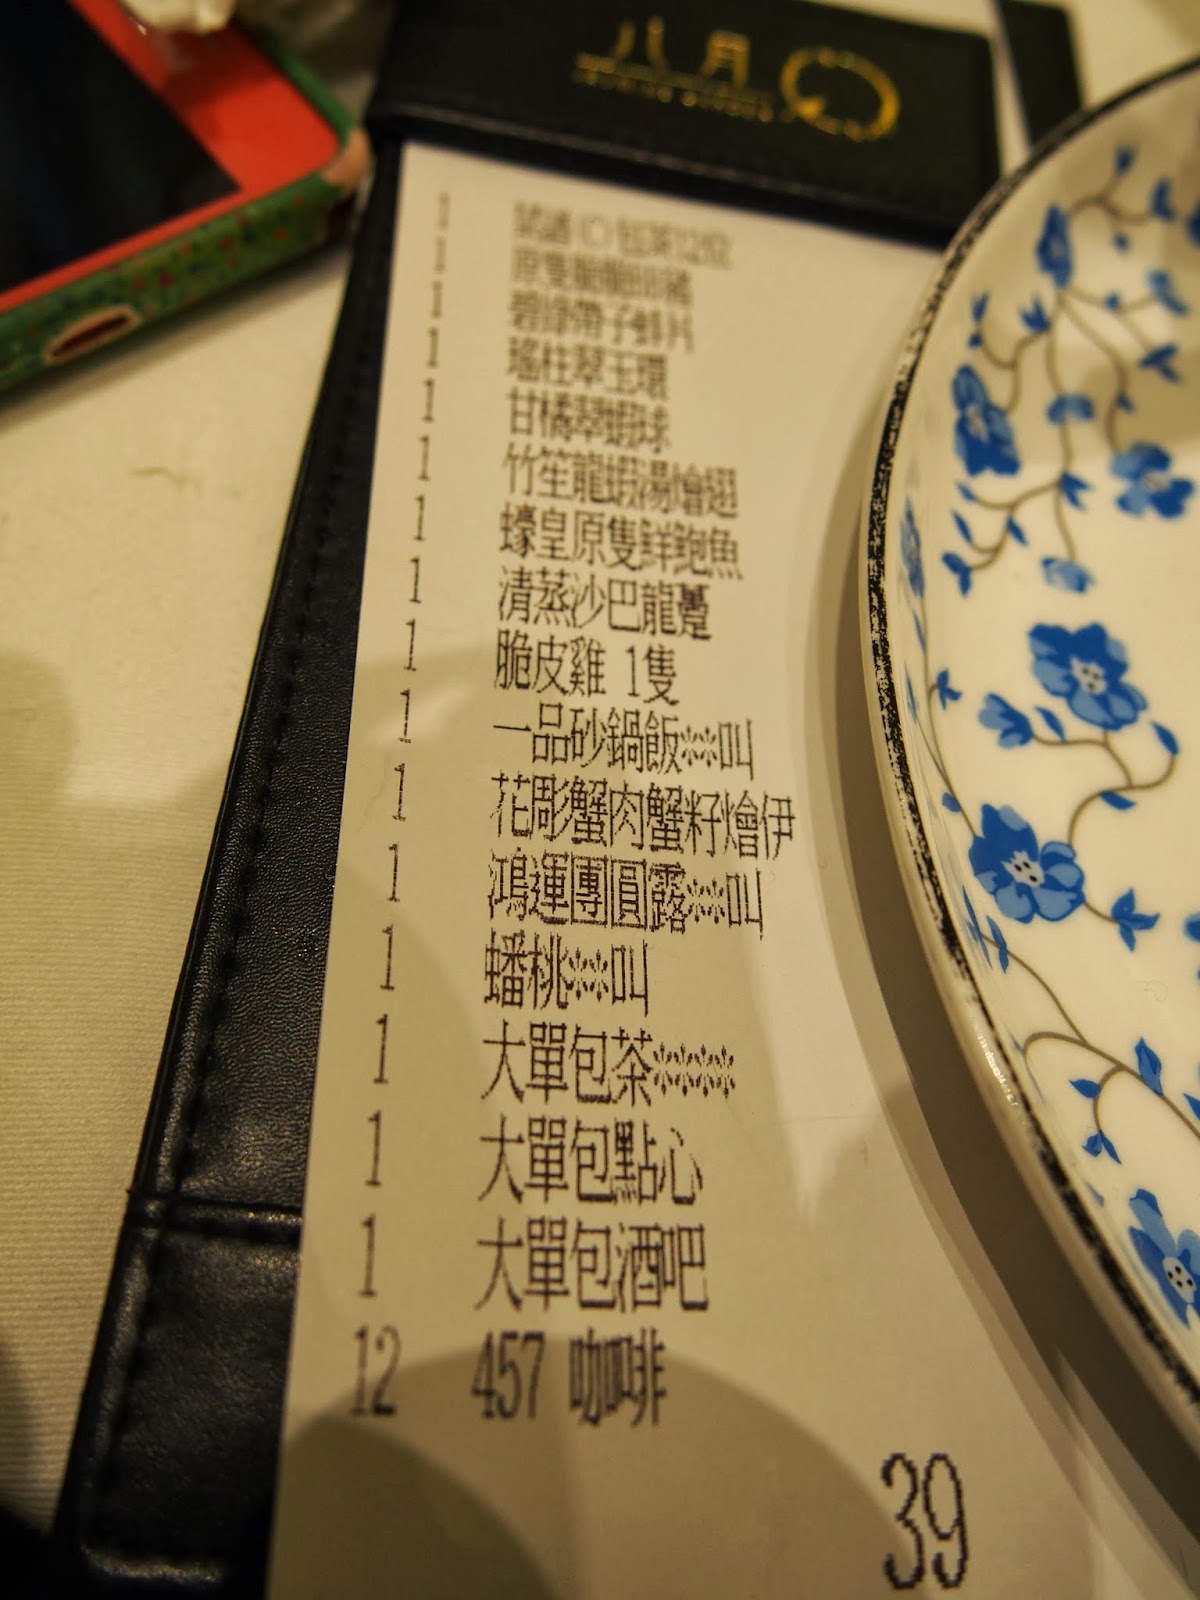 八月
1 包茶12位
1 原隻
1 碧綠帶子蚌片
1 瑤柱翠玉環
1 甘橘翠蝦球
1 竹笙龍蝦湯燴翅
1 蠔皇原隻鮮鮑魚
1 清蒸沙巴龍躉
1 脆皮雞 1隻
1 一品砂鍋飯**叫
1 花彫蟹肉蟹籽燴伊
1 鴻運團圓露**叫
1 蟠桃**叫
1 大單包茶****
1 大單包點心
1 大單包酒吧
12 457 咖啡
39